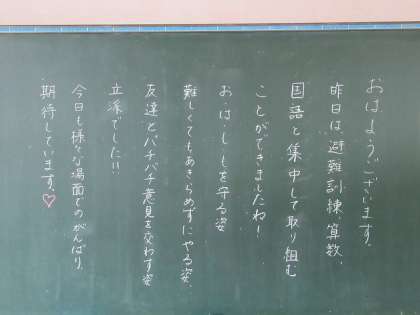 おはようございます。
昨日は、避難訓練、算数、
国語と集中して取り組む
ことができましたね！
お・は・し・もを守る姿
難しくてもあきらめずにやる姿
友達とバチバチ意見を交わす姿
立派でした!!
今日も様々な場面でのがんばり、
期待しています。♡